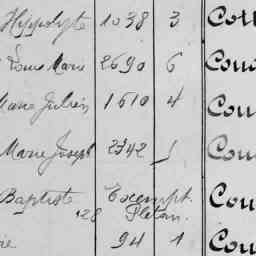 Hyppolyte 1038 3 Cou
Louis Marie 2690 6 Cou
Marie Julien 1610 4 Cou
Marie Joseph 2742 1 Cou
Baptiste Exempt. Cou
128
94 1 Cou